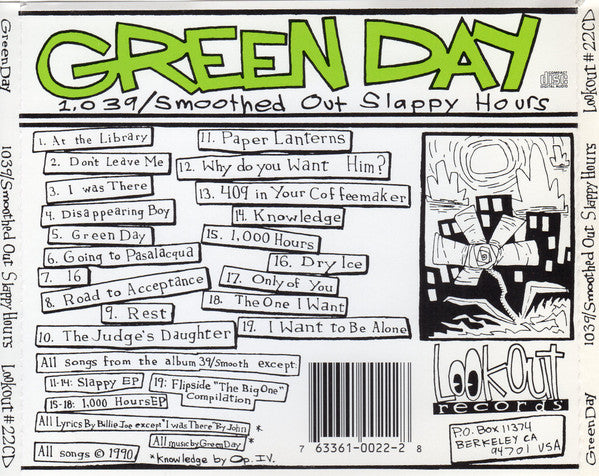 GREEN DAY
1,039/Smoothed Out Slappy Hours
COMPACT
disc
DIGITAL AUDIO
1. At the Library
2. Don't Leave Me
3. I was There
4. Disappearing Boy
5. Green Day
6. Going to Pasalacqua
7. 16
8. Road to Acceptance
9. Rest
10. The Judge's Daughter
11. Paper Lanterns
12. Why do you Want Him?
13. 409 in Your Coffeemaker
14. Knowledge
15. 1,000 Hours
16. Dry Ice
17. Only of You
18. The One I Want
19. I Want to Be Alone
All songs from the album 39/Smooth except:
11-14: Slappy EP
15-18: 1,000 Hours EP
19: Flipside "The Big One"
Compilation
All Lyrics By Billie Joe except "I was There" By John
All music by Green Day *
All songs © 1990
* Knowledge by Op. I.V.
7 63361-0022-2 8
Lookout
records
P.O. Box 11374
BERKELEY CA
94701 USA
Green Day 1039/Smoothed Out Slappy Hours Lookout #22CD
Green Day 1039/Smoothed Out Slappy Hours Lookout #22CD